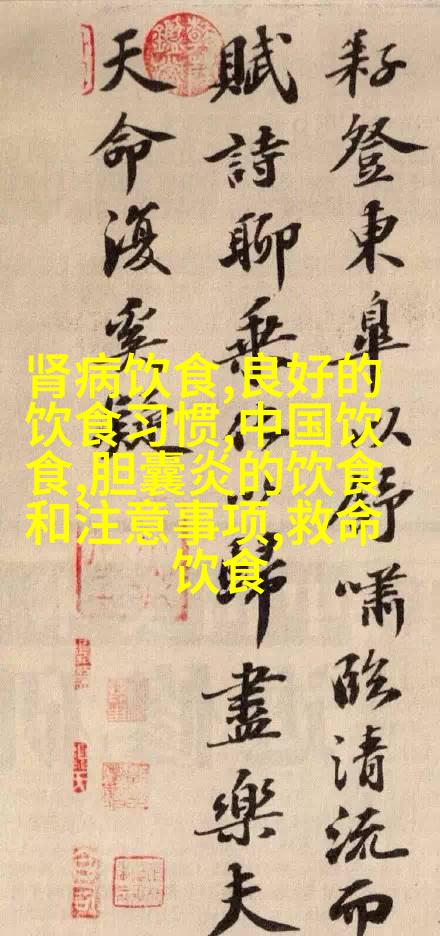 耔登東皋以舒嘯臨清流而
賦詩聊乘化以歸盡樂夫
天命復奚疑
肾病饮食,良好的
饮食习惯,中国饮
食,胆囊炎的饮食
和注意事项,救命
饮食